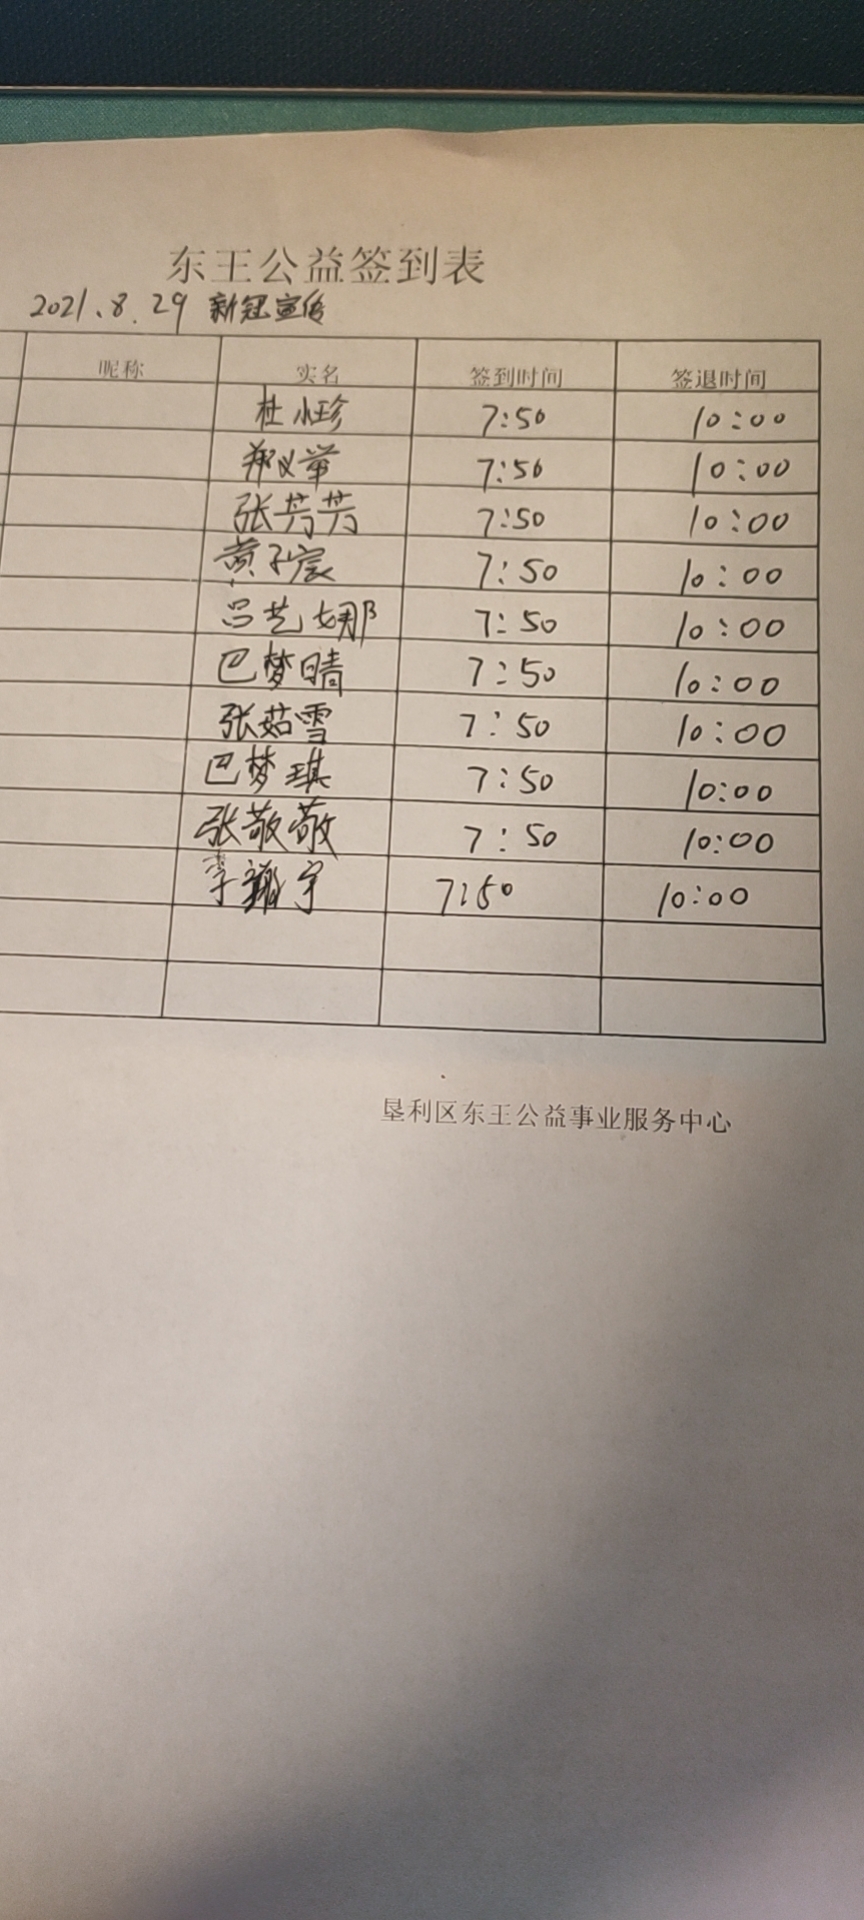 东王公益签到表
2021.8.29 新冠宣传
昵称 实名 签到时间 签退时间
杜小珍 7:50 10:00
郑义 7:50 10:00
张芳芳 7:50 10:00
黄子宸 7:50 10:00
吕艺娜 7:50 10:00
巴梦晴 7:50 10:00
张茹雪 7:50 10:00
巴梦琪 7:50 10:00
张敬敬 7:50 10:00
李 宇 7:50 10:00
垦利区东王公益事业服务中心